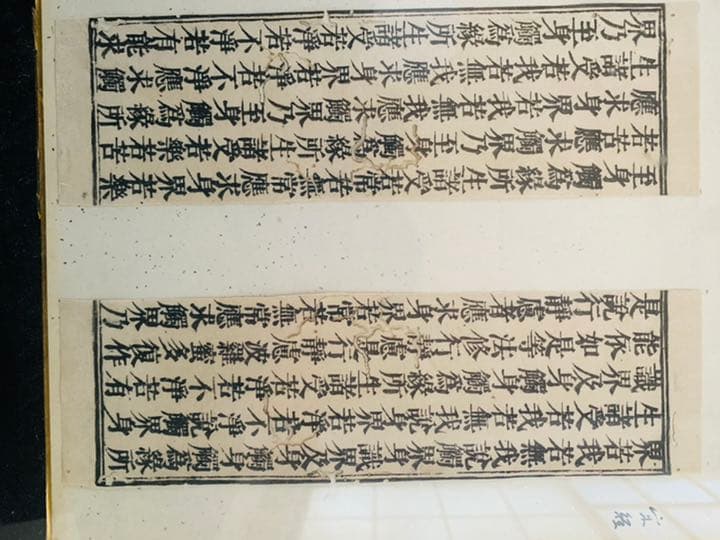 界若我若無我說觸界身識界及身觸身觸為緣所
生諸受若我若無我說身界若淨若不淨說觸界身
識界及身觸身觸為緣所生諸受若淨若不淨若有
能依如是等法修行靜慮是行靜慮波羅蜜多復作
是說行靜慮者應求身界若常若無常應求觸界乃
至身觸為緣所生諸受若常若無常應求身界若樂
若苦應求觸界乃至身觸為緣所生諸受若樂若苦
應求身界若我若無我應求觸界乃至身觸為緣所
生諸受若我若無我應求身界若淨若不淨應求觸
界乃至身觸為緣所生諸受若淨若不淨若有能求
宋經